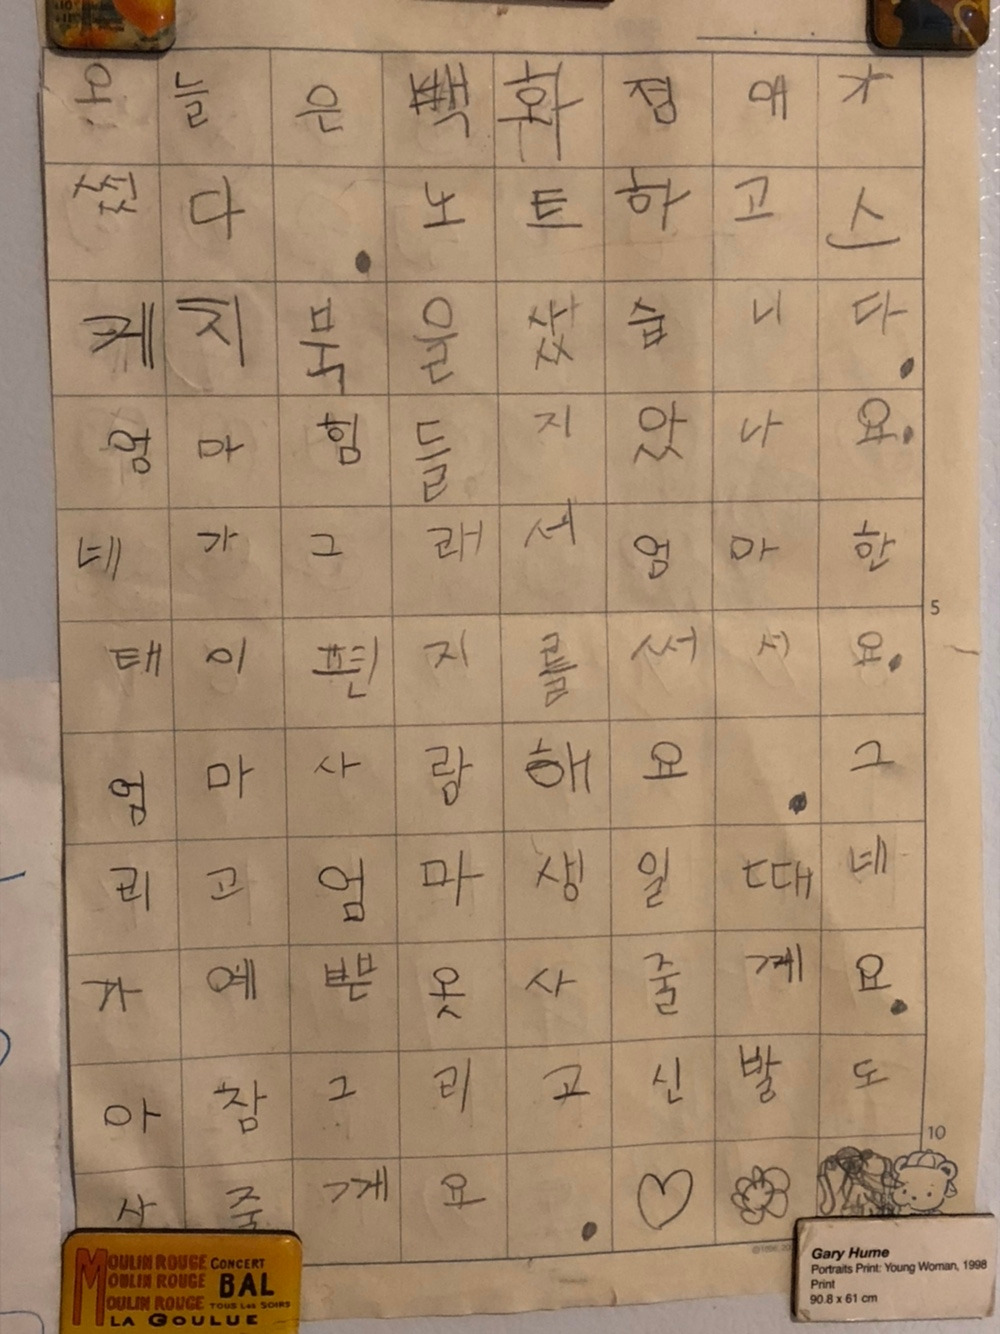 오늘은빽화점애가
썼다.노트하고스
케치북을샀습니다.
엄마힘들지았나요.
네가그래서엄마한
5
태이편지를써서요.
엄마사랑해요.그
리고엄마생일때네
가예쁜옷사줄께요.
아참그리고신발도
10
사줄께요.
MOULIN ROUGE CONCERT
MOULIN ROUGE BAL
MOULIN ROUGE TOUS LES SOIRS
LA GOULUE
Gary Hume
Portraits Print: Young Woman, 1998
Print
90.8 x 61 cm